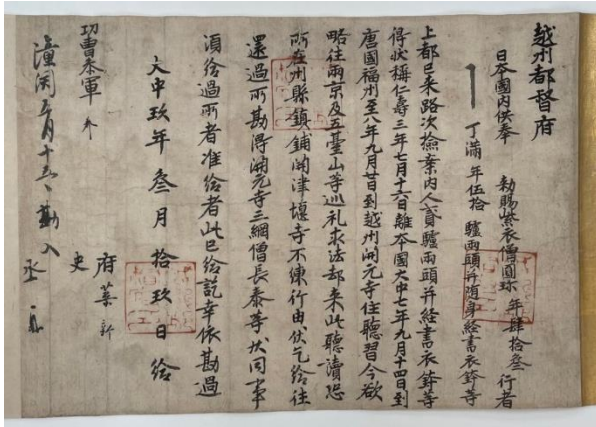 越州都督府
日本國内供奉 勅賜紫衣僧圓珍 年肆拾叁 行者
丁滿 年伍拾 驢兩頭并随身経書衣鉢等
上都已来路次撿案内人貳驢兩頭并経書衣鉢等
得狀稱仁壽三年七月十六日離本國大中七年九月十四日到
唐國福州至八年九月廿日到越州開元寺住聽習今欲
略往兩京及五臺山等巡礼求法却来此聽讀恐
所在州縣鎮鋪開津堰寺不練行由伏乞給往
還過所勘得開元寺三綱僧長泰等狀同事
須給過所者准給者此已給訖幸依勘過
大中玖年叁月拾玖日給
府葉新
功曹叅軍
史
潼関五月十五日勘入
丞